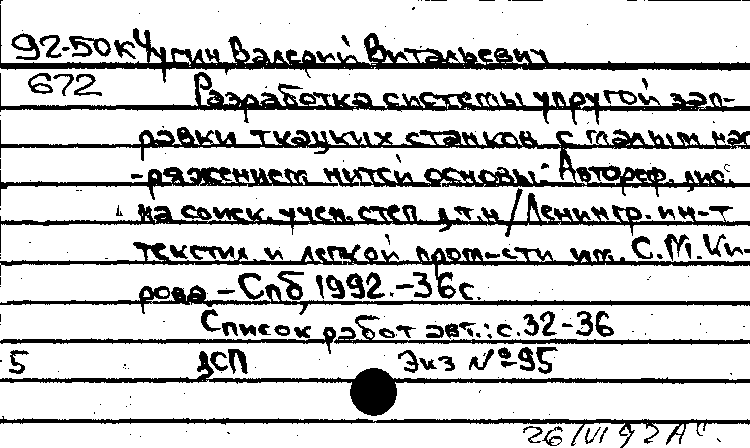 92-50к Чугин, Валерий Витальевич
672 Разработка системы упругой зап-
равки ткацких станков с малым нап-
-ряжением нитей основы: Автореф. дис.
на соиск. учен. степ д.т.н/Ленингр. ин-т
текстил. и легкой пром-сти им. С.М.Ки-
рова.-Спб, 1992.-36с.
Список работ авт.: с.32-36
5 ДСП Экз №95
26/VI 92